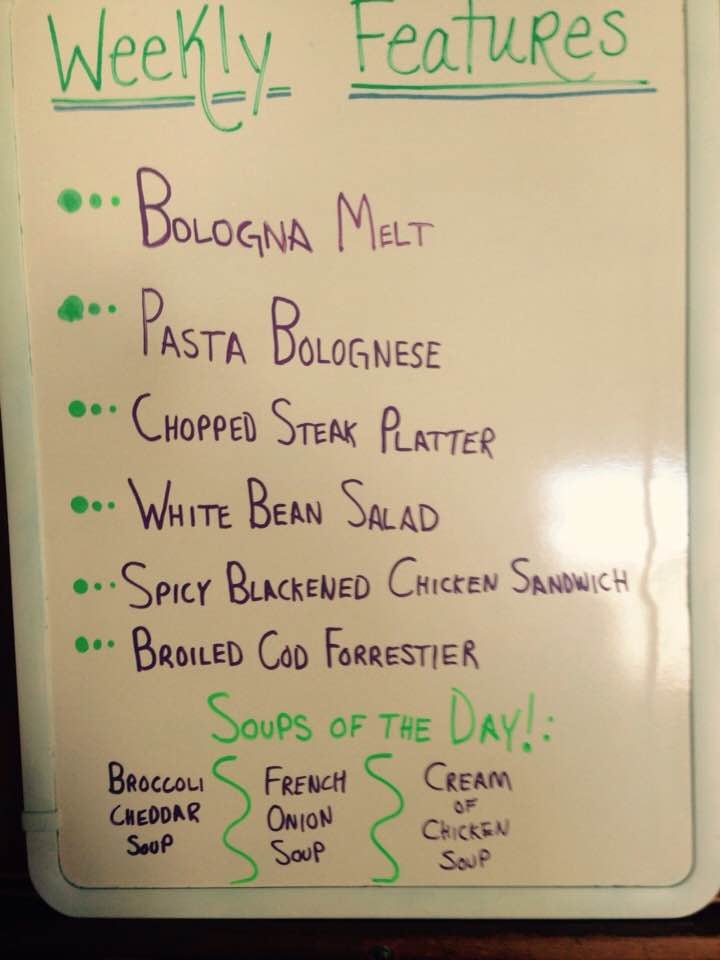 Weekly Features
Bologna Melt
Pasta Bolognese
Chopped Steak Platter
White Bean Salad
Spicy Blackened Chicken Sandwich
Broiled Cod Forrestier
Soups of the Day!:
Broccoli Cheddar Soup
French Onion Soup
Cream of Chicken Soup